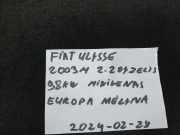 FIAT ULYSSE
2003M 2.2 DYZELIS
98KW MINIVENAS
EUROPA MĖLYNA
2024-02-28